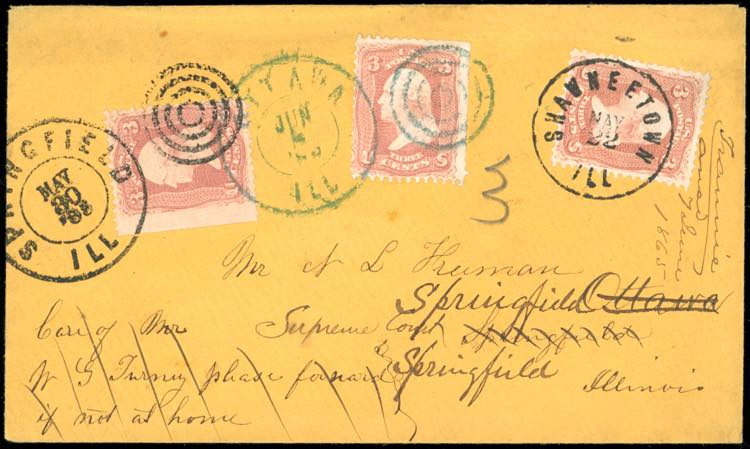 SPRINGFIELD
MAY
30
ILL
OTTAWA
JUN
ILL
3 3
U S
THREE
CENTS
SHAWNEETOWN
MAY
22
ILL
3
and
June
1865
3
Mr N L Freeman
Springfield Ottawa
Care of Mr Supreme Court Springfield
W G Turney please forward Springfield
if not at home Illinois